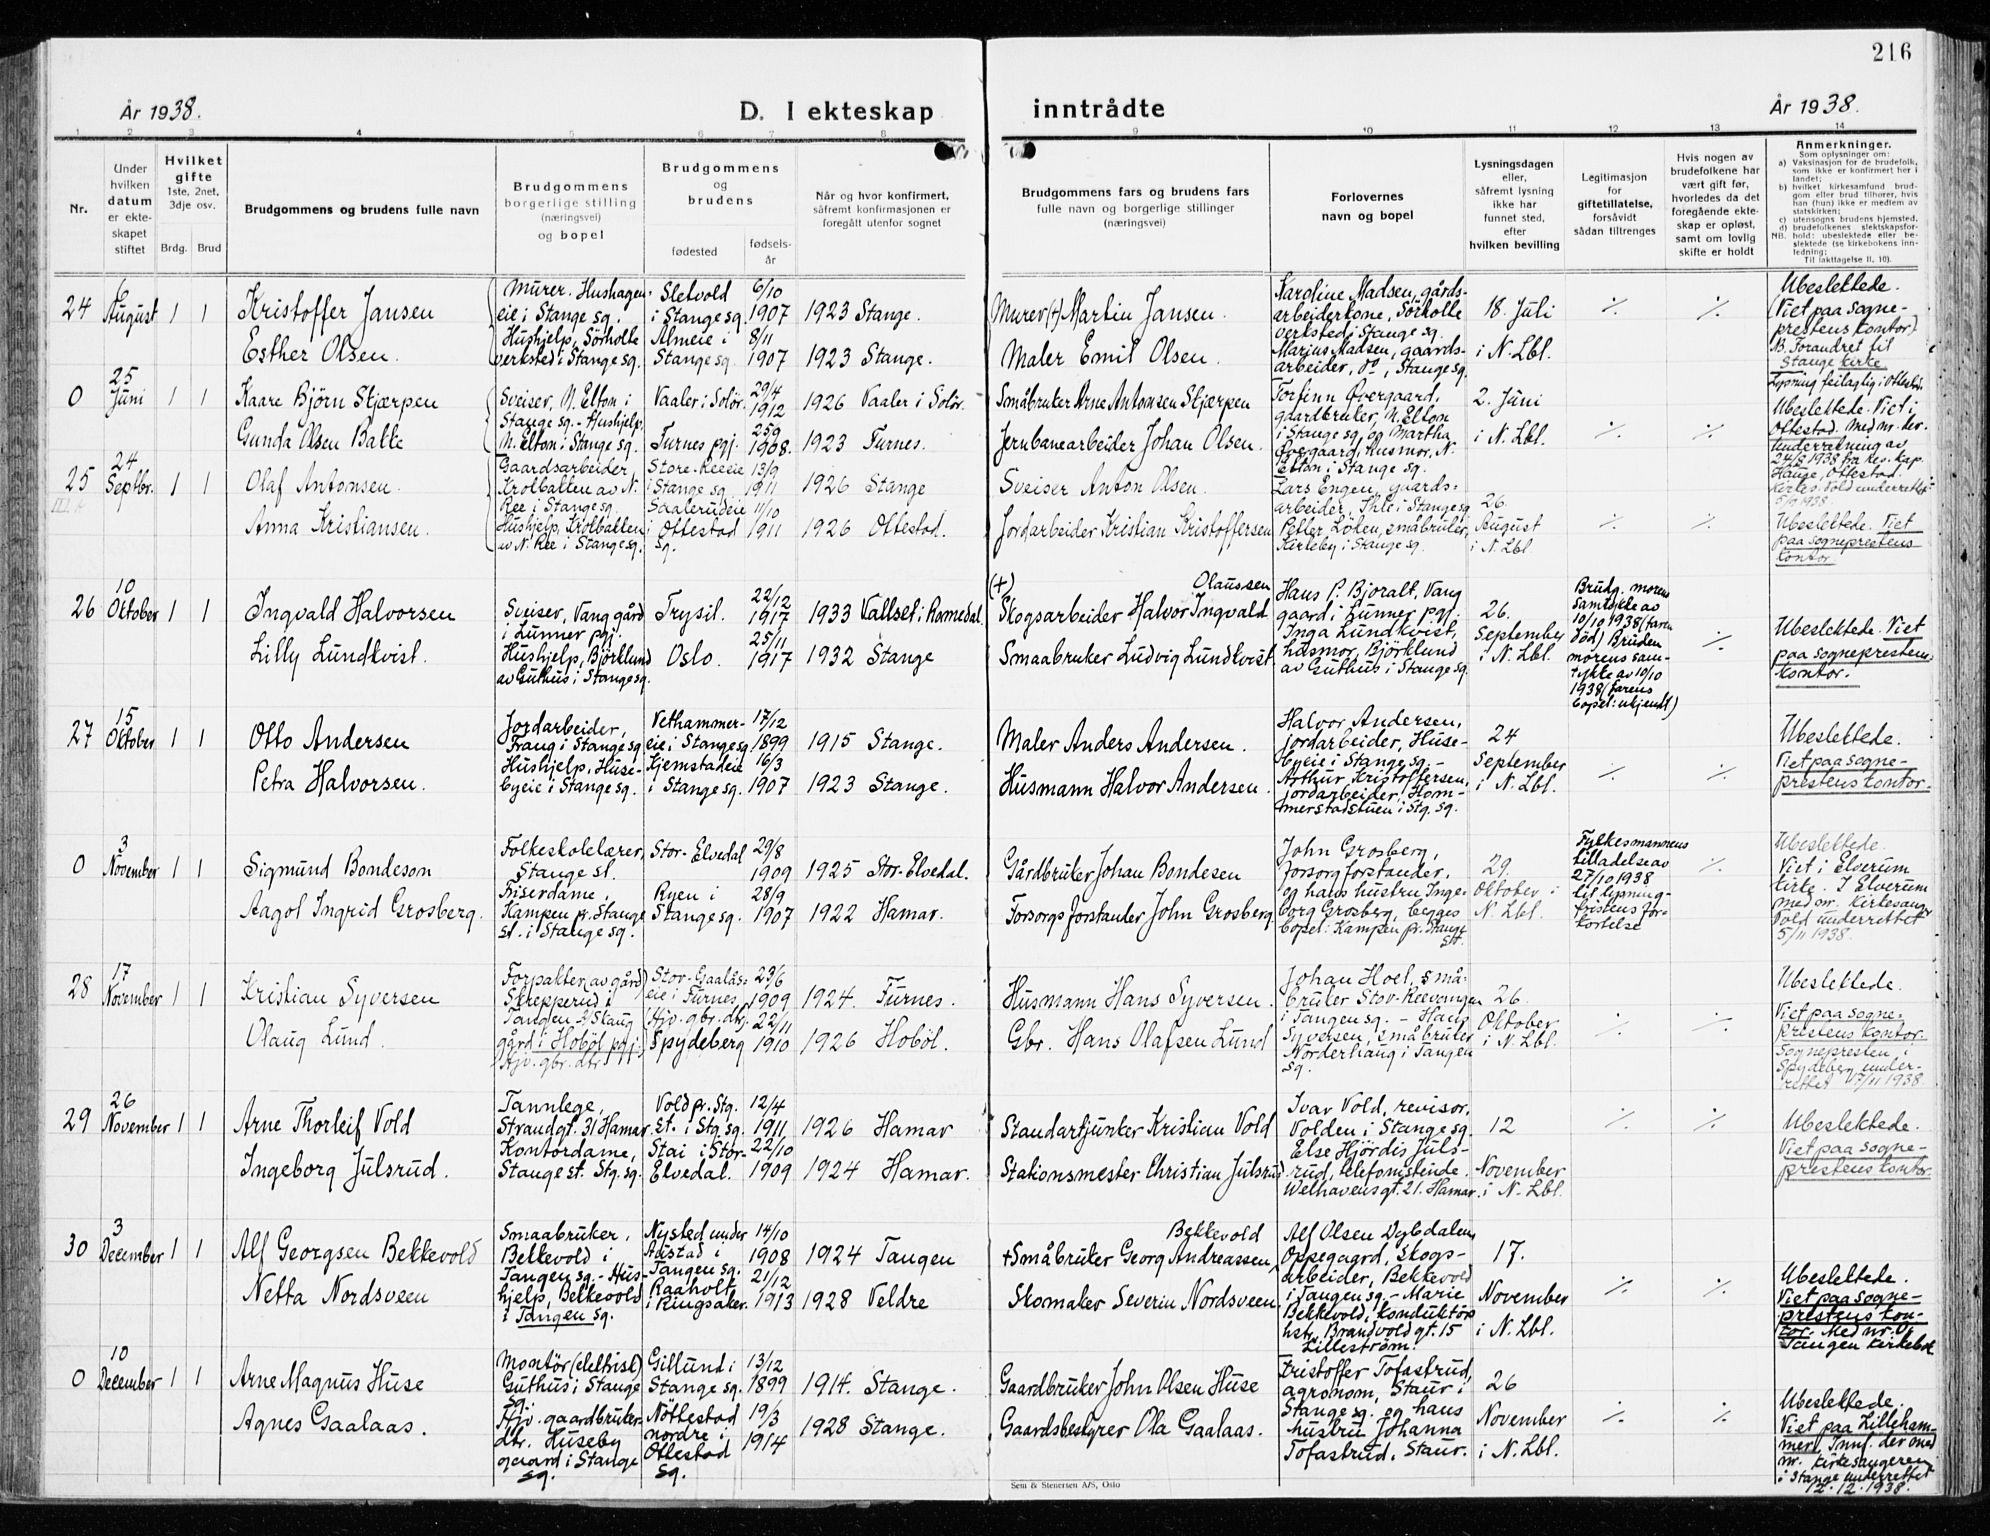 216
År 1938.
D. I ekteskap inntrådte
År 1938.
1 2 3 4 5 6 7 8 9 10 11 12 13 14
Nr.
Under hvilken datum er ekteskapet stiftet
Hvilket gifte
1ste, 2net, 3dje osv.
Brdg. Brud
Brudgommens og brudens fulle navn
Brudgommens borgerlige stilling (næringsvei) og bopel
Brudgommens og brudens
fødested
fødselsår
Når og hvor konfirmert, såfremt konfirmasjonen er foregått utenfor sognet
Brudgommens fars og brudens fars
fulle navn og borgerlige stillinger
(næringsvei)
Forlovernes navn og bopel
Lysningsdagen eller, såfremt lysning ikke har funnet sted, efter hvilken bevilling
Legitimasjon for giftetillatelse, forsåvidt sådan tiltrenges
Hvis nogen av brudefolkene har vært gift før, hvorledes da det foregående ekteskap er opløst, samt om lovlig skifte er holdt
Anmerkninger.
Som oplysninger om:
a) Vaksinasjon for de brudefolk, som ikke er konfirmert her i landet;
b) hvilket kirkesamfund brudgom eller brud tilhører, hvis han (hun) ikke er medlem av statskirken;
c) utensogns brudens hjemsted.
d) brudefolkenes slektskapsforhold: ubeslektede eller beslektede (se kirkebokens innledning;
NB. Til iakttagelse II, 10).
24
6 August
1 1
Kristoffer Jansen
Esther Olsen.
Murer. Hushageneie i Stange sg.
Hushjelp, Sörholte verksted i Stange sg.
Sletvold i Stange sg.
Almeie i Stange sg.
6/10 1907
8/11 1907
1923 Stange.
1923 Stange.
Murer (+) Martin Jansen.
Maler Emil Olsen.
Karoline Madsen, gårdsarbeiderkone, Sörholte verksted i Stange sg.
Marius Madsen, gaardsarbeider, do, Stange sg.
18. Juli
i N. Lbl.
·/.
·/.
Ubeslektede.
(Viet paa sogneprestens kontor)
Forandret til Stange kirke
0
25 Juni
1 1
Kaare Björn Skjærpen
Gunda Olsen Bakke
Sveiser, N. Elton i Stange sg. - Hushjelp, N. Elton i Stange sg.
Vaaler i Solör.
Furnes pgj.
29/4 1912
25/9 1908.
1926 Vaaler i Solör.
1923 Furnes.
Småbruker Arne Antonsen Skjærpen
Jernbanearbeider Johan Olsen.
Torfinn Övergaard, gaardbruker, N. Elton i Stange sg. og Martha Övergaard, husmor, N. Elton i Stange sg.
2. Juni
i N. Lbl.
·/.
·/.
Lysning feilaglig i Ottestad.
Ubeslektede. Viet i Ottestad. Med nr. der.
Underretning av 24/8 1938 fra res. kap. Hauge, Ottestad.
25
24 Septbr.
1 1
Olaf Antonsen.
Anna Kristiansen.
Gaardsarbeider, Krolbakken av N. Ree i Stange sg.
Hushjelp, Krolbakken av N. Ree i Stange sg.
Store-Reeeie i Stange sg.
Saalerudeie i Ottestad sg.
13/9 1911
11/10 1911
1926 Stange
1926 Ottestad.
Sveiser Anton Olsen.
Jordarbeider Kristian Kristoffersen
Lars Engen, gaardsarbeider, Ihle i Stange sg
Petter Löken, småbruker, Kirkeby i Stange sg.
26. August
i N. Lbl
·/.
·/.
Ubeslektede. Viet paa sogneprestens kontor
26
10 Oktober
1 1
Ingvald Halvorsen
Lilly Lundkvist.
Sveiser, Vang gård i Lunner pgj.
Hushjelp, Björklund av Guthus i Stange sg.
Trysil.
Oslo.
22/12 1917
25/11 1917
1933 Vallset i Romedal.
1932 Stange
(+) Skogsarbeider Halvor Ingvald Olaussen
Smaabruker Ludvig Lundkvist
Hans P. Bjoralt, Vang gaard i Lunner pgj.
Inga Lundkvist, husmor, Björklund av Guthus i Stange sg.
26. September
i N. Lbl.
Brudg. morens samtykke av 10/10 1938 (faren död) Bruden morens samtykke av 10/10 1938 (farens bopel: ukjendt)
·/.
Ubeslektede. Viet paa sogneprestens kontor.
27
15 Oktober
1 1
Otto Andersen
Petra Halvorsen.
Jordarbeider, Frang i Stange sg
Hushjelp, Husebyeie i Stange sg.
Vethammereie i Stange sg.
Kjemstadeie i Stange sg.
17/12 1899
16/3 1907
1915 Stange.
1923 Stange.
Maler Anders Andersen.
Husmann Halvor Andersen.
Halvor Andersen, jordarbeider, Husebyeie i Stange sg. -
Arthur Kristoffersen, jordarbeider, Hommerstadstuen i Stg. sg.
24 September
i N. Lbl.
·/.
·/.
Ubeslektede.
Viet paa sogneprestens kontor.
0
3 November
1 1
Sigmund Bondeson
Aagot Ingrid Grosberg.
Folkeskolelærer, Stange st.
Friserdame, Kampen pr. Stange st. i Stange sg.
Stor-Elvedal
Ryen i Stange sg.
29/8 1909
28/9 1907
1925 Stor-Elvedal.
1922 Hamar.
Gårdbruker Johan Bondesen
Forsorgsforstander John Grosberg
John Grosberg, forsorgforstander, og hans hustru Ingeborg Grosberg, begges bopel: Kampen pr. Stange st.
29. Oktober i
N. Lbl.
Fylkesmannens tilladelse av 27/10 1938 til lysningfristens forkortelse
·/.
Ubeslektede.
Viet i Elverum kirke. I Elverum med nr. Kirkesanger Vold underrettet 5/11 1938.
28
17 November
1 1
Kristian Syversen
Olaug Lund.
Forpakter av gård Skrepperud i Tangen
gård i Hoböl pgj.
Hjv. gbr. dtr.
Stor-Gaalåseie i Furnes
(Hjv. gbr. dtr.
Spydeberg
23/6 1909
22/11 1910
1924. Furnes.
1926 Hoböl.
Husmann Hans Syversen.
Gbr. Hans Olafsen Lund
Johan Hoel, småbruker Stor-Reevangen i Tangen sg. - Hans Syversen, småbruker Norderhaug i Tangen sg.
26. Oktober
i N. Lbl.
·/.
·/.
Ubeslektede.
Viet paa sogneprestens kontor.
Sognepresten i Spydeberg underrettet 17/11 1938
29
26 November
1 1
Arne Thorleif Vold
Ingeborg Julsrud.
Tannlege, Strandgt. 31 Hamar.
Kontordame, Stange st. Stg. sg.
Vold pr. Stg. st. i Stg. sg.
Stai i Stor-Elvedal.
12/4 1911
22/10 1909
1926 Hamar
1924 Hamar.
Standartjunker Kristian Vold
Stationsmester Christian Julsrud
Ivar Vold, revisor, Volden i Stange sg.
Else Hjördis Julsrud, telefonistinde. Welhavensgt. 21. Hamar.
12 November
i N. Lbl.
·/.
·/.
Ubeslektede.
Viet paa sogneprestens kontor.
30
3 December
1 1
Alf Georgsen Bekkevold
Netta Nordsveen
Smaabruker, Bekkevold i Tangen sg. - Hushjelp, Bekkevold i Tangen sg.
Nysted under Austad i Tangen sg.
Raaholt i Ringsaker.
14/10 1908
21/12 1913
1924 Tangen
1928 Veldre
+Småbruker Georg Andreassen Bekkevold
Skomaker Severin Nordsveen.
Alf Olsen Dybdalen Oppegaard, skogsarbeider, Bekkevold i Tangen sg. - Marie Bekkevold, konduktör hstr, Brandvoldgt. 15 Lilleström.
17. November
i N. Lbl.
·/.
·/.
Ubeslektede.
Viet paa sogneprestens kontor. Med nr. Tangen kirkebok
0
10 December
1 1
Arne Magnus Huse
Agnes Gaalaas.
Montör (elektrisk) Guthus i Stange sg.
Hjv. gaardbruker dtr. Huseby gaard i Stange sg.
Gillund i Stange sg.
Nöttestad nordre i Ottestad sg.
13/12 1899
19/3 1914
1914. Stange.
1928 Stange.
Gaardbruker John Olsen Huse
Gaardsbestyrer Ola Gaalaas.
Kristoffer Tofastrud, agronom, Staur i Stange sg. og hans hustru Johanna Tofastrud, Staur.
26 November
i N. Lbl.
·/.
·/.
Ubeslektede.
Viet paa Lillehammer. Innf. der med nr. Kirkesangeren i Stange underrettet 12.12.1938.
Sem & Stenersen A/S, Oslo